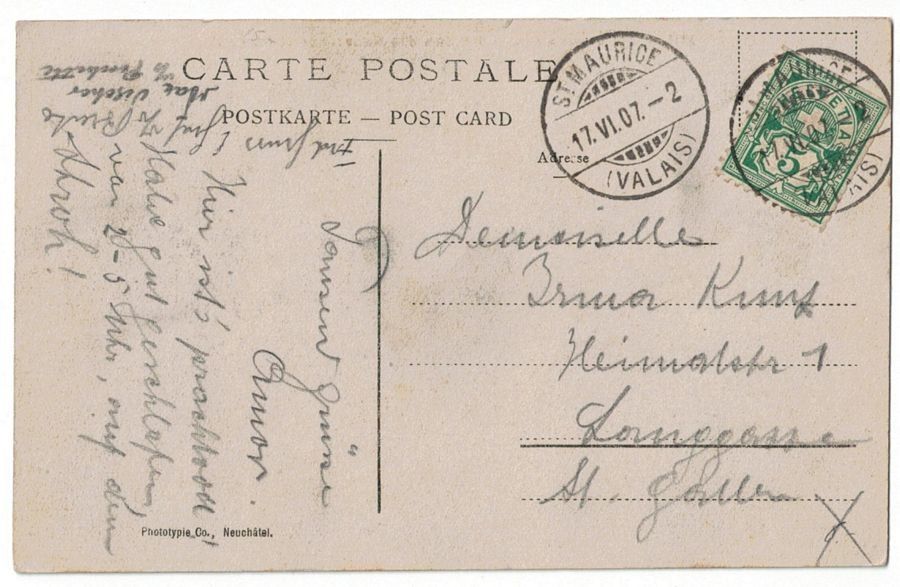 CARTE POSTALE
POSTKARTE — POST CARD
Adresse
ST MAURICE
17.VI.07.–2
(VALAIS)
HELVETIA
5
Demoiselle
Irma Kunz
Heimatstr 1
Langgasse
St. Gallen
Hier ist's prachtvoll
Habe gut geschlafen,
von 2–5 Uhr, auf dem
Stroh!
Tausend Grüsse
Max Fischer
Phototypie Co., Neuchâtel.